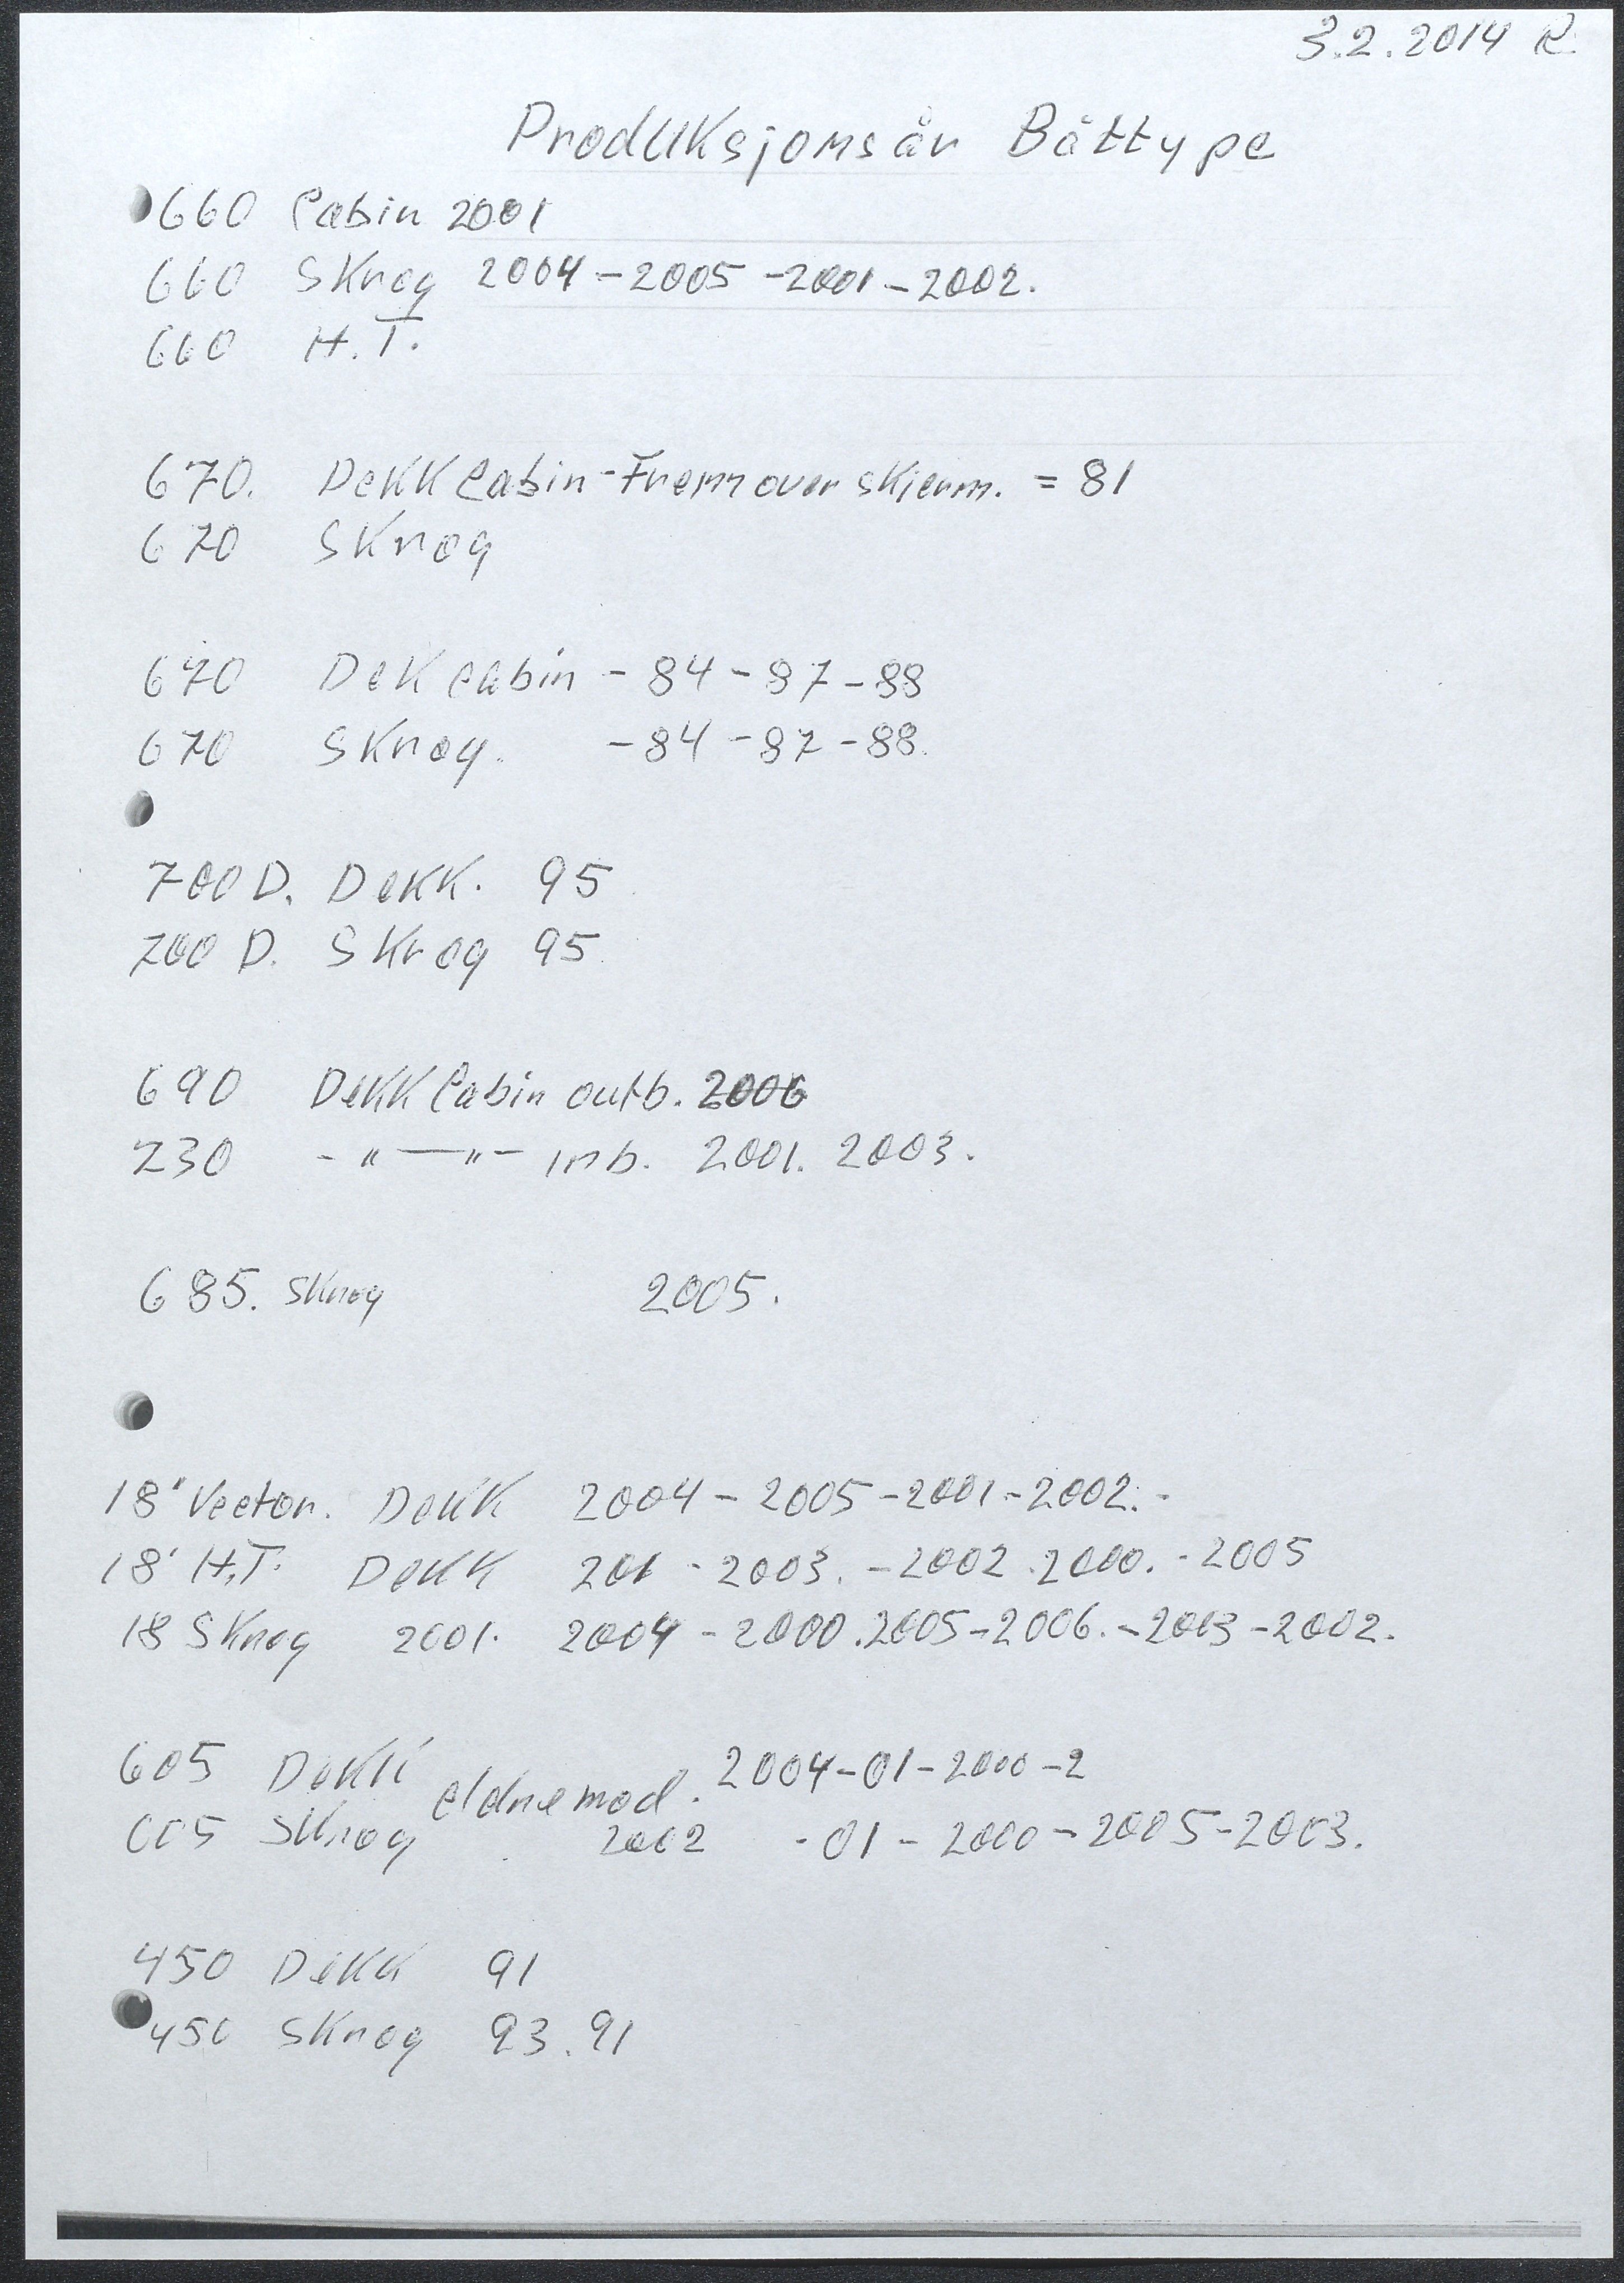 3.2.2014 R
Produksjonsår Båttype
660 Cabin 2001
660 Skrog 2004 - 2005 - 2001 - 2002.
660 H.T.
670. Dekk Cabin - Fremover skjerm. = 81
670 Skrog
670 Dek cabin - 84 - 87 - 88
670 Skrog. - 84 - 87 - 88.
700 D. Dekk. 95
700 D. Skrog 95
690 Dekk Cabin outb. 2006
730 - " — " - inb. 2001. 2003.
685. Skrog 2005.
18' Vector. Dekk 2004 - 2005 - 2001 - 2002. -
18' H.T. Dekk 201 - 2003. - 2002. 2000. - 2005
18 Skrog 2001. 2004 - 2000. 2005 - 2006. - 2003 - 2002.
605 Dekk eldre mod. 2004 - 01 - 2000 - 2
605 Skrog 2002 - 01 - 2000 - 2005 - 2003.
450 Dekk 91
450 Skrog 93. 91